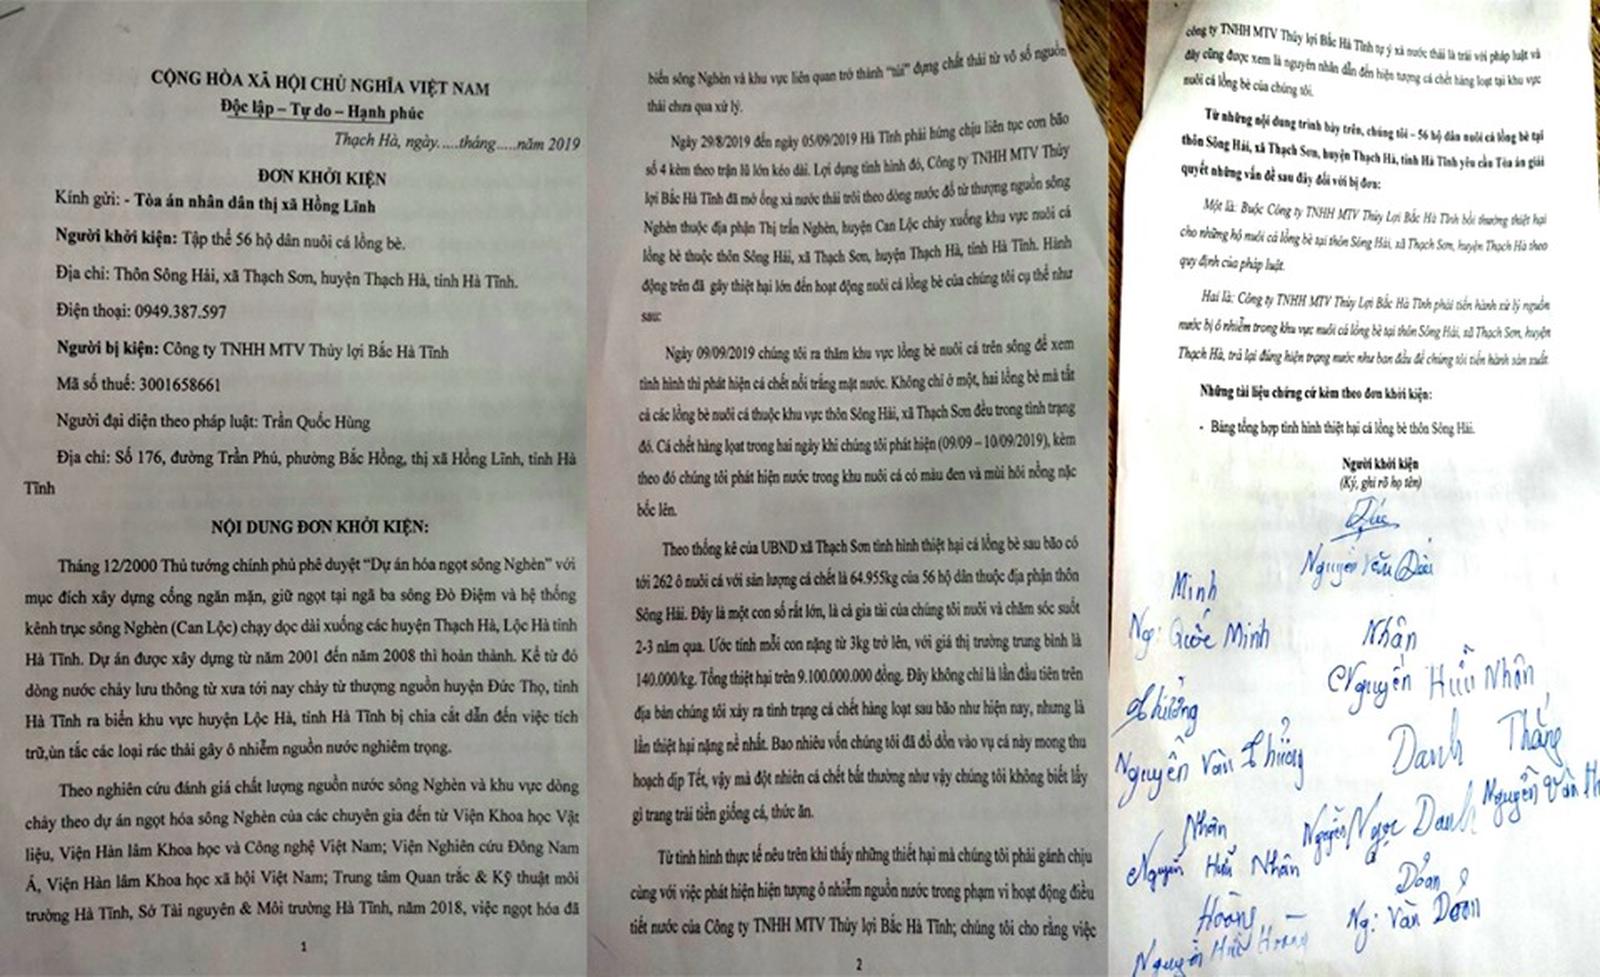 CỘNG HÒA XÃ HỘI CHỦ NGHĨA VIỆT NAM
Độc lập – Tự do – Hạnh phúc
Thạch Hà, ngày.....tháng.....năm 2019
ĐƠN KHỞI KIỆN
Kính gửi: - Tòa án nhân dân thị xã Hồng Lĩnh
Người khởi kiện: Tập thể 56 hộ dân nuôi cá lồng bè.
Địa chỉ: Thôn Sông Hải, xã Thạch Sơn, huyện Thạch Hà, tỉnh Hà Tĩnh.
Điện thoại: 0949.387.597
Người bị kiện: Công ty TNHH MTV Thủy lợi Bắc Hà Tĩnh
Mã số thuế: 3001658661
Người đại diện theo pháp luật: Trần Quốc Hùng
Địa chỉ: Số 176, đường Trần Phú, phường Bắc Hồng, thị xã Hồng Lĩnh, tỉnh Hà
Tĩnh
NỘI DUNG ĐƠN KHỞI KIỆN:
Tháng 12/2000 Thủ tướng chính phủ phê duyệt “Dự án hóa ngọt sông Nghèn” với
mục đích xây dựng cống ngăn mặn, giữ ngọt tại ngã ba sông Đò Điệm và hệ thống
kênh trục sông Nghèn (Can Lộc) chạy dọc dài xuống các huyện Thạch Hà, Lộc Hà tỉnh
Hà Tĩnh. Dự án được xây dựng từ năm 2001 đến năm 2008 thì hoàn thành. Kể từ đó
dòng nước chảy lưu thông từ xưa tới nay chảy từ thượng nguồn huyện Đức Thọ, tỉnh
Hà Tĩnh ra biển khu vực huyện Lộc Hà, tỉnh Hà Tĩnh bị chia cắt dẫn đến việc tích
trữ,ùn tắc các loại rác thải gây ô nhiễm nguồn nước nghiêm trọng.
Theo nghiên cứu đánh giá chất lượng nguồn nước sông Nghèn và khu vực dòng
chảy theo dự án ngọt hóa sông Nghèn của các chuyên gia đến từ Viện Khoa học Vật
liệu, Viện Hàn lâm Khoa học và Công nghệ Việt Nam; Viện Nghiên cứu Đông Nam
Á, Viện Hàn lâm Khoa học xã hội Việt Nam; Trung tâm Quan trắc & Kỹ thuật môi
trường Hà Tĩnh, Sở Tài nguyên & Môi trường Hà Tĩnh, năm 2018, việc ngọt hóa đã
1
biến sông Nghèn và khu vực liên quan trở thành “túi” đựng chất thải từ vô số nguồn
thải chưa qua xử lý.
Ngày 29/8/2019 đến ngày 05/09/2019 Hà Tĩnh phải hứng chịu liên tục cơn bão
số 4 kèm theo trận lũ lớn kéo dài. Lợi dụng tình hình đó, Công ty TNHH MTV Thủy
lợi Bắc Hà Tĩnh đã mở ống xả nước thải trôi theo dòng nước đổ từ thượng nguồn sông
Nghèn thuộc địa phận Thị trấn Nghèn, huyện Can Lộc chảy xuống khu vực nuôi cá
lồng bè thuộc thôn Sông Hải, xã Thạch Sơn, huyện Thạch Hà, tỉnh Hà Tĩnh. Hành
động trên đã gây thiệt hại lớn đến hoạt động nuôi cá lồng bè của chúng tôi cụ thể như
sau:
Ngày 09/09/2019 chúng tôi ra thăm khu vực lồng bè nuôi cá trên sông để xem
tình hình thì phát hiện cá chết nổi trắng mặt nước. Không chỉ ở một, hai lồng bè mà tất
cả các lồng bè nuôi cá thuộc khu vực thôn Sông Hải, xã Thạch Sơn đều trong tình trạng
đó. Cá chết hàng lọat trong hai ngày khi chúng tôi phát hiện (09/09 – 10/09/2019), kèm
theo đó chúng tôi phát hiện nước trong khu nuôi cá có màu đen và mùi hôi nồng nặc
bốc lên.
Theo thống kê của UBND xã Thạch Sơn tình hình thiệt hại cá lồng bè sau bão có
tới 262 ô nuôi cá với sản lượng cá chết là 64.955kg của 56 hộ dân thuộc địa phận thôn
Sông Hải. Đây là một con số rất lớn, là cả gia tài của chúng tôi nuôi và chăm sóc suốt
2-3 năm qua. Ước tính mỗi con nặng từ 3kg trở lên, với giá thị trường trung bình là
140.000/kg. Tổng thiệt hại trên 9.100.000.000 đồng. Đây không chỉ là lần đầu tiên trên
địa bàn chúng tôi xảy ra tình trạng cá chết hàng loạt sau bão như hiện nay, nhưng là
lần thiệt hại nặng nề nhất. Bao nhiêu vốn chúng tôi đã đổ dồn vào vụ cá này mong thu
hoạch dịp Tết, vậy mà đột nhiên cá chết bất thường như vậy chúng tôi không biết lấy
gì trang trải tiền giống cá, thức ăn.
Từ tình hình thực tế nêu trên khi thấy những thiệt hại mà chúng tôi phải gánh chịu
cùng với việc phát hiện hiện tượng ô nhiễm nguồn nước trong phạm vi hoạt động điều
tiết nước của Công ty TNHH MTV Thủy lợi Bắc Hà Tĩnh; chúng tôi cho rằng việc
2
công ty TNHH MTV Thủy lợi Bắc Hà Tĩnh tự ý xả nước thải là trái với pháp luật và
đây cũng được xem là nguyên nhân dẫn đến hiện tượng cá chết hàng loạt tại khu vực
nuôi cá lồng bè của chúng tôi.
Từ những nội dung trình bày trên, chúng tôi – 56 hộ dân nuôi cá lồng bè tại
thôn Sông Hải, xã Thạch Sơn, huyện Thạch Hà, tỉnh Hà Tĩnh yêu cầu Tòa án giải
quyết những vấn đề sau đây đối với bị đơn:
Một là: Buộc Công ty TNHH MTV Thủy Lợi Bắc Hà Tĩnh bồi thường thiệt hại
cho những hộ nuôi cá lồng bè tại thôn Sông Hải, xã Thạch Sơn, huyện Thạch Hà theo
quy định của pháp luật.
Hai là: Công ty TNHH MTV Thủy Lợi Bắc Hà Tĩnh phải tiến hành xử lý nguồn
nước bị ô nhiễm trong khu vực nuôi cá lồng bè tại thôn Sông Hải, xã Thạch Sơn, huyện
Thạch Hà, trả lại đúng hiện trạng nước như ban đầu để chúng tôi tiến hành sản xuất.
Những tài liệu chứng cứ kèm theo đơn khởi kiện:
- Bảng tổng hợp tình hình thiệt hại cá lồng bè thôn Sông Hải.
Người khởi kiện
(Ký, ghi rõ họ tên)
Nguyễn Văn
Minh
Ng: Quốc Minh
Nhận
Nguyễn Hữu Nhân
Nguyễn Văn
Danh Thắng
Nguyễn Ngọc Danh Nguyễn Văn Th
Nhân
Nguyễn Hữu Nhân
Doan
Ng: Văn
Hoàng
Nguyễn Hữu Hoàng